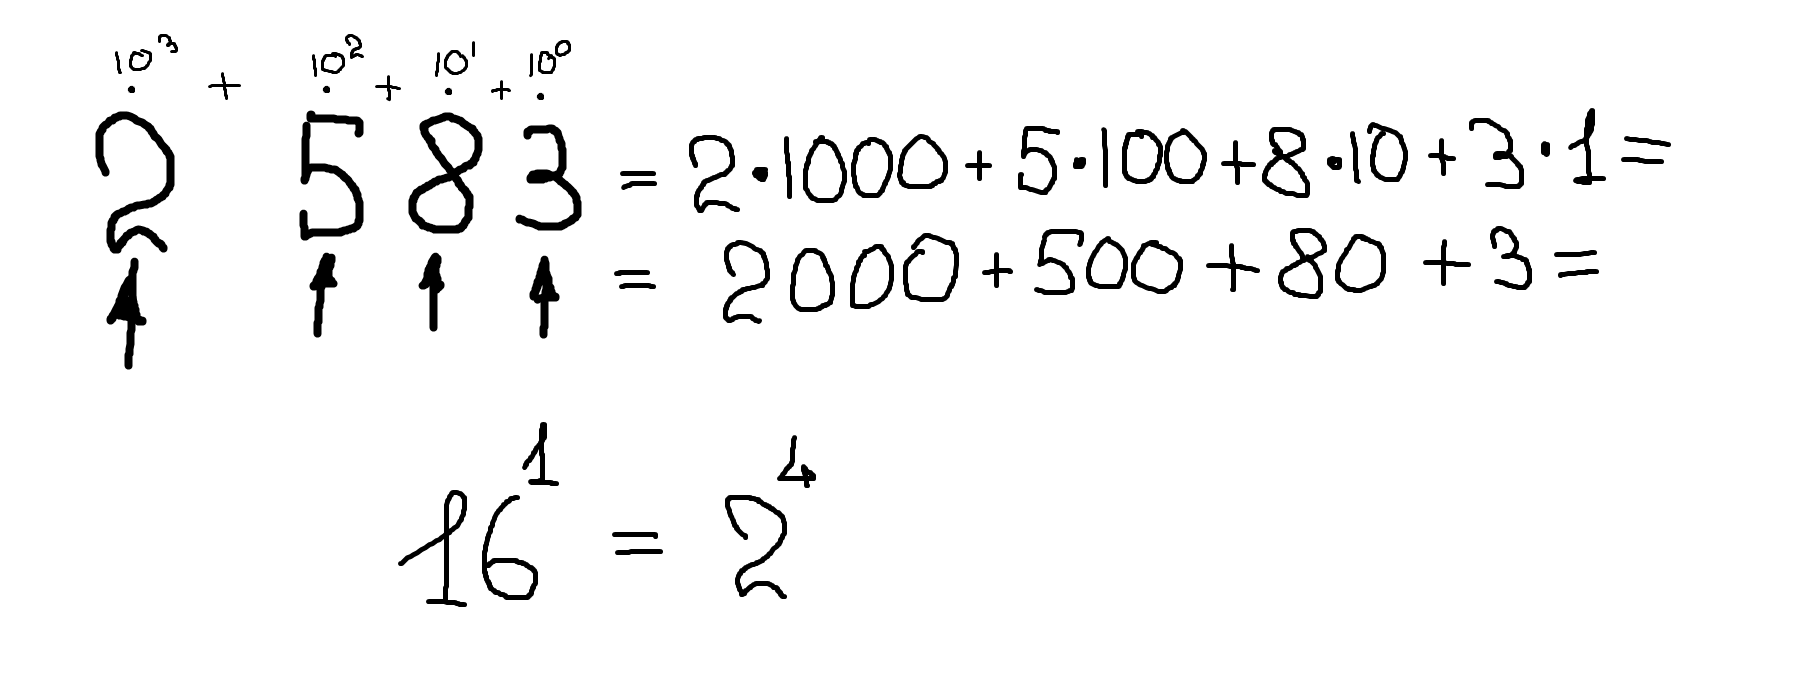 ·10³ + ·10² + ·10¹ + ·10⁰
2 5 8 3 = 2·1000 + 5·100 + 8·10 + 3·1 =
= 2000 + 500 + 80 + 3 =
16¹ = 2⁴